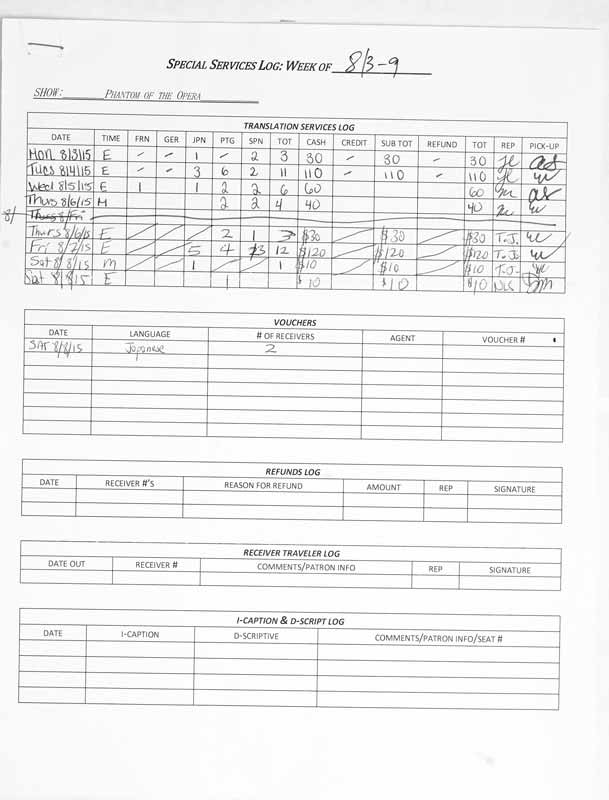 SPECIAL SERVICES LOG: WEEK OF 8/3-9
SHOW: PHANTOM OF THE OPERA
TRANSLATION SERVICES LOG
DATE TIME FRN GER JPN PTG SPN TOT CASH CREDIT SUB TOT REFUND TOT REP PICK-UP
Mon 8/3/15 E - - 1 - 2 3 30 - 30 - 30
Tues 8/4/15 E - - 3 6 2 11 110 - 110 - 110
Wed 8/5/15 E 1 1 2 2 6 60 60
Thurs 8/6/15 M 2 2 4 40 40
8/ Thurs 8/Fri
Thurs 8/6/15 E 2 1 3 $30 $30 $30 T.J.
Fri 8/7/15 E 5 4 3 12 $120 $120 $120 T.J.
Sat 8/8/15 M 1 1 $10 $10 $10 T.J.
Sat 8/8/15 E 1 $10 $10 $10 NLS
VOUCHERS
DATE LANGUAGE # OF RECEIVERS AGENT VOUCHER #
SAT 8/8/15 Japanese 2
REFUNDS LOG
DATE RECEIVER #'S REASON FOR REFUND AMOUNT REP SIGNATURE
RECEIVER TRAVELER LOG
DATE OUT RECEIVER # COMMENTS/PATRON INFO REP SIGNATURE
I-CAPTION & D-SCRIPT LOG
DATE I-CAPTION D-SCRIPTIVE COMMENTS/PATRON INFO/SEAT #